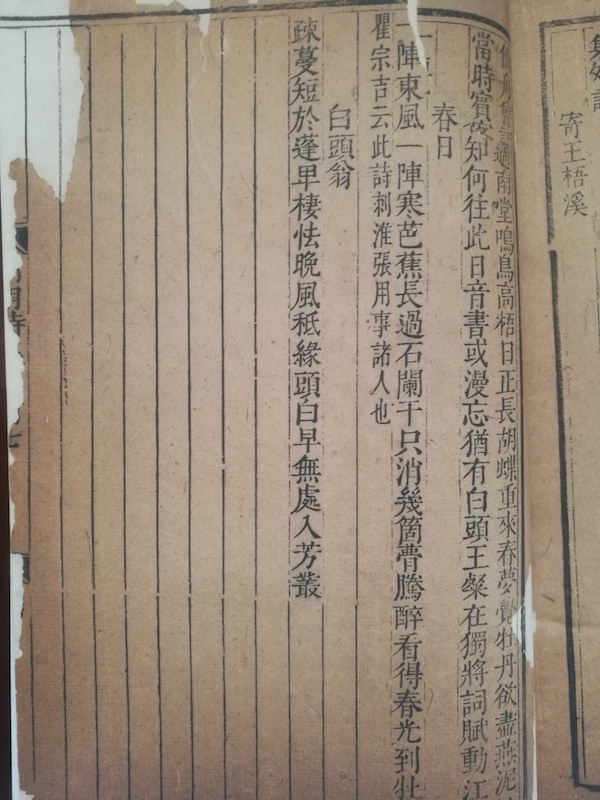 寄王梧溪
南堂鳴鳥高梧日正長胡蝶重來春夢覺牡丹欲盡燕泥
當時賓從知何往此日音書或漫忘猶有白頭王粲在獨將詞賦動江
春日
一陣東風一陣寒芭蕉長過石闌干只消幾箇瞢騰醉看得春光到牡
瞿宗吉云此詩刺淮張用事諸人也
白頭翁
疎蔓短於蓬早棲怯晚風秪緣頭白早無處入芳叢